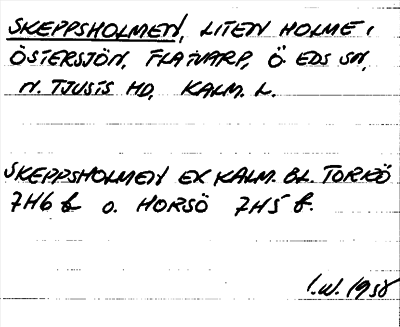 SKEPPSHOLMEN, LITEN HOLME I
ÖSTERSJÖN, FLATVARP, Ö. EDS SN,
N. TJUSTS HD, KALM. L.
SKEPPSHOLMEN EX KALM. BL. TORRÖ
7H6 b O. HORSÖ 7H5 f.
I.W. 1958